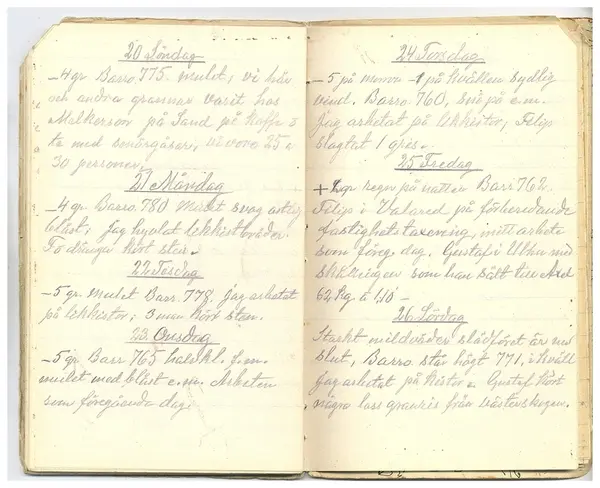 20 Söndag
-4 gr. Barro. 775 mulet, vi här
och andra grannar varit hos
på Sand på Kaffe
med smörgåsar, vi voro 25 a
30 personer.
21 Måndag
-4 gr. Barro. 780 Mulet svag
blåst; jag hyvlat likkistbräder.
To drängar kört sten.
22 Tisdag
-5 gr. Mulet Barr. 778. jag arbetat
på likkistor; 3 man kört sten.
23. Onsdag
-5 gr. Barr 765 halvkl. f.m.
mulet med blåst e.m. Arbeten
som föregående dag.
24 Torsdag
-5 på morron -1 på kvällen sydlig
vind. Barro. 760, snö på e.m.
Jag arbetat på likkistor, Filip
slagtat 1 gris.
25 Fredag
regn på natten Barr 762.
Filip i Valared på förberedande
fastighetstaxering, mitt arbete
som föreg. dag. Gustaf i med
som han sålt till Axel
62 Kg. a 1,10 -
26. Lördag
Starkt mildväder slädföret är
slut, Barro. står högt 771, i kväll
Jag arbetat på kistor. Gustaf kört
några lass granris från västerskogen.